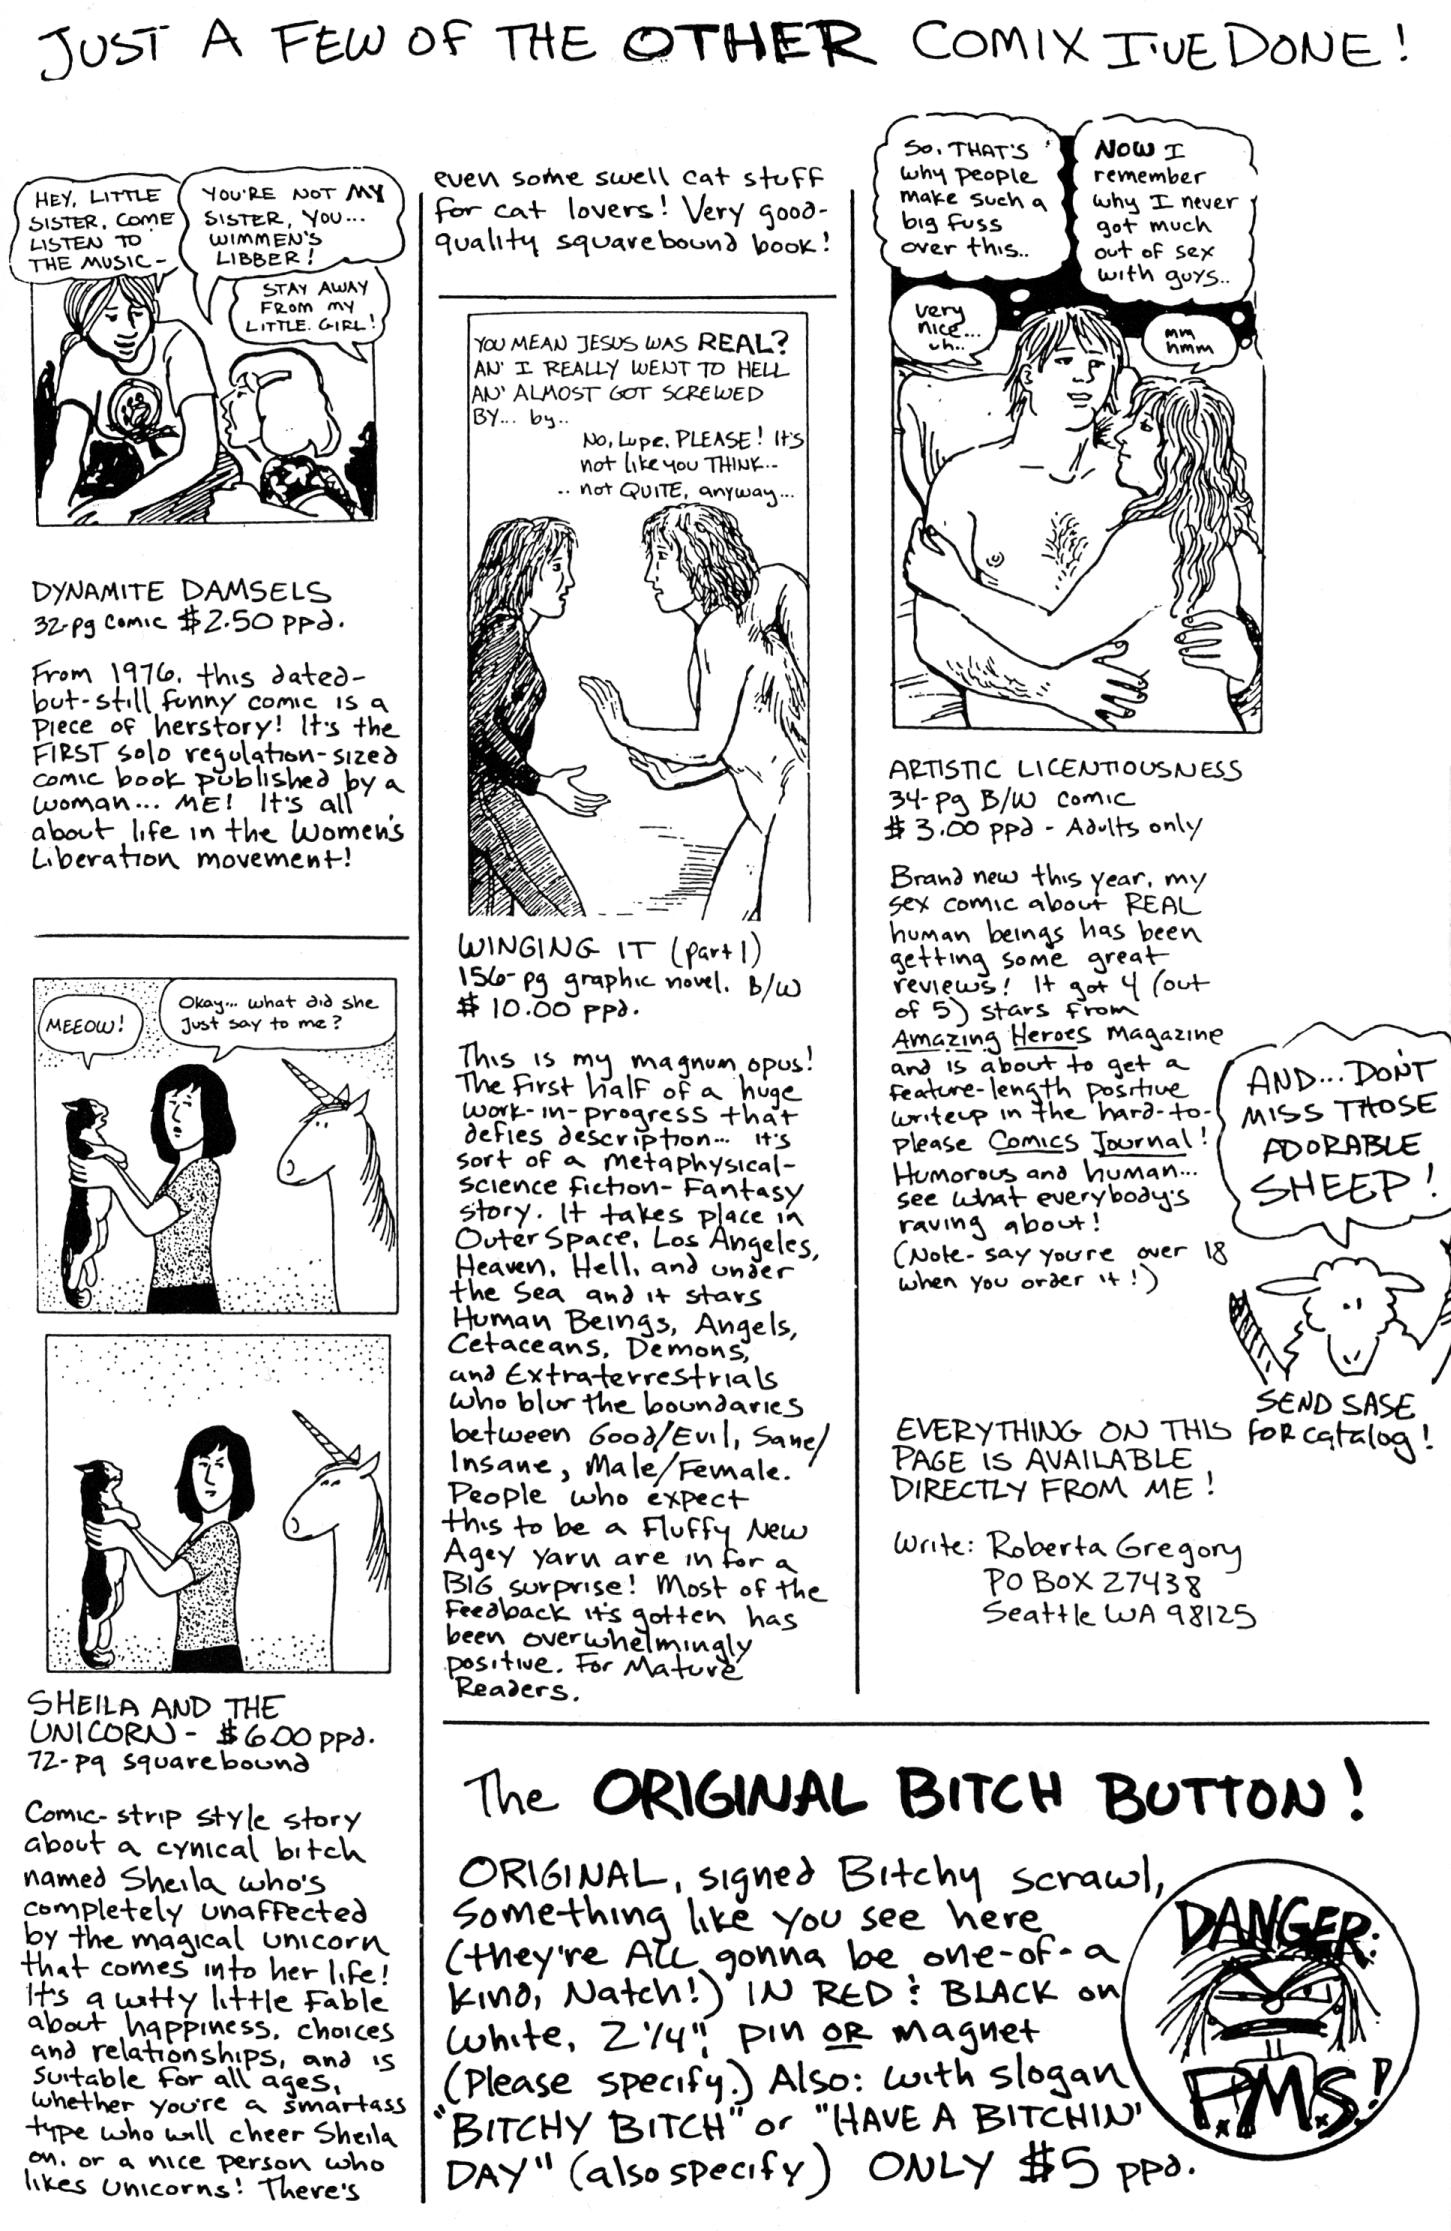 JUST A FEW OF THE OTHER COMIX I'VE DONE!
HEY, LITTLE
SISTER, COME
LISTEN TO
THE MUSIC-
YOU'RE NOT MY
SISTER, YOU...
WIMMEN'S
LIBBER!
STAY AWAY
FROM MY
LITTLE GIRL!
DYNAMITE DAMSELS
32-pg comic $2.50 ppd.
From 1976, this dated-
but-still funny comic is a
piece of herstory! It's the
FIRST solo regulation-sized
comic book published by a
woman... ME! It's all
about life in the Women's
Liberation movement!
MEEOW!
Okay... what did she
just say to me?
SHEILA AND THE
UNICORN - $6.00 ppd.
72-pg squarebound
Comic-strip style story
about a cynical bitch
named Sheila who's
completely unaffected
by the magical unicorn
that comes into her life!
It's a witty little fable
about happiness, choices
and relationships, and is
suitable for all ages,
whether you're a smartass
type who will cheer Sheila
on, or a nice person who
likes unicorns! There's
even some swell cat stuff
for cat lovers! Very good-
quality squarebound book!
YOU MEAN JESUS WAS REAL?
AN' I REALLY WENT TO HELL
AN' ALMOST GOT SCREWED
BY... by..
No, Lupe, PLEASE! It's
not like you THINK...
.. not QUITE, anyway...
WINGING IT (part 1)
156-pg graphic novel. B/W
$10.00 ppd.
This is my magnum opus!
The first half of a huge
work-in-progress that
defies description... it's
sort of a metaphysical-
science fiction-fantasy
story. It takes place in
Outer Space, Los Angeles,
Heaven, Hell, and under
the Sea and it stars
Human Beings, Angels,
Cetaceans, Demons,
and Extraterrestrials
who blur the boundaries
between Good/Evil, Sane/
Insane, Male/Female.
People who expect
this to be a Fluffy New
Agey yarn are in for a
BIG surprise! Most of the
feedback it's gotten has
been overwhelmingly
positive. For Mature
Readers.
So, THAT'S
why people
make such a
big fuss
over this..
NOW I
remember
why I never
got much
out of sex
with guys..
very
nice...
uh..
mm
hmm
ARTISTIC LICENTIOUSNESS
34-pg B/W comic
$3.00 ppd - Adults only
Brand new this year, my
sex comic about REAL
human beings has been
getting some great
reviews! It got 4 (out
of 5) stars from
Amazing Heroes magazine
and is about to get a
feature-length positive
writeup in the hard-to-
please Comics Journal!
Humorous and human...
see what everybody's
raving about!
(Note- say you're over 18
when you order it!)
AND... DON'T
MISS THOSE
ADORABLE
SHEEP!
SEND SASE
for catalog!
EVERYTHING ON THIS
PAGE IS AVAILABLE
DIRECTLY FROM ME!
Write: Roberta Gregory
PO BOX 27438
Seattle WA 98125
The ORIGINAL BITCH BUTTON!
ORIGINAL, signed Bitchy scrawl,
something like you see here
(they're ALL gonna be one-of-a
kind, Natch!) IN RED & BLACK on
white, 2 1/4", pin OR magnet
(Please specify.) Also: with slogan
"BITCHY BITCH" or "HAVE A BITCHIN'
DAY" (also specify) ONLY $5 ppd.
DANGER:
P.M.S.!